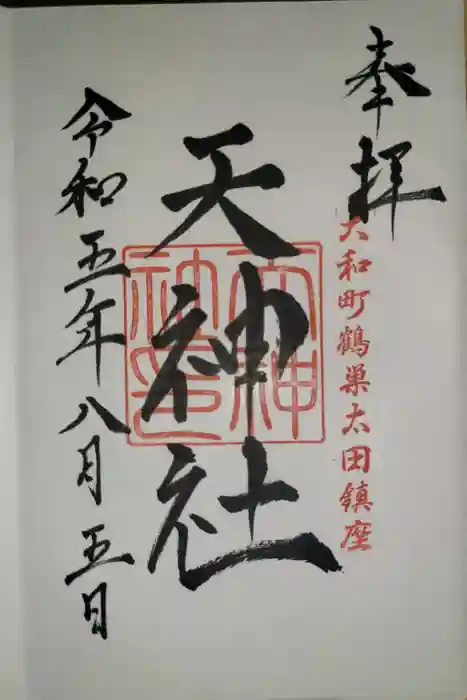 奉拝
大和町鶴巣太田鎮座
天神社
天神社印
令和五年八月五日